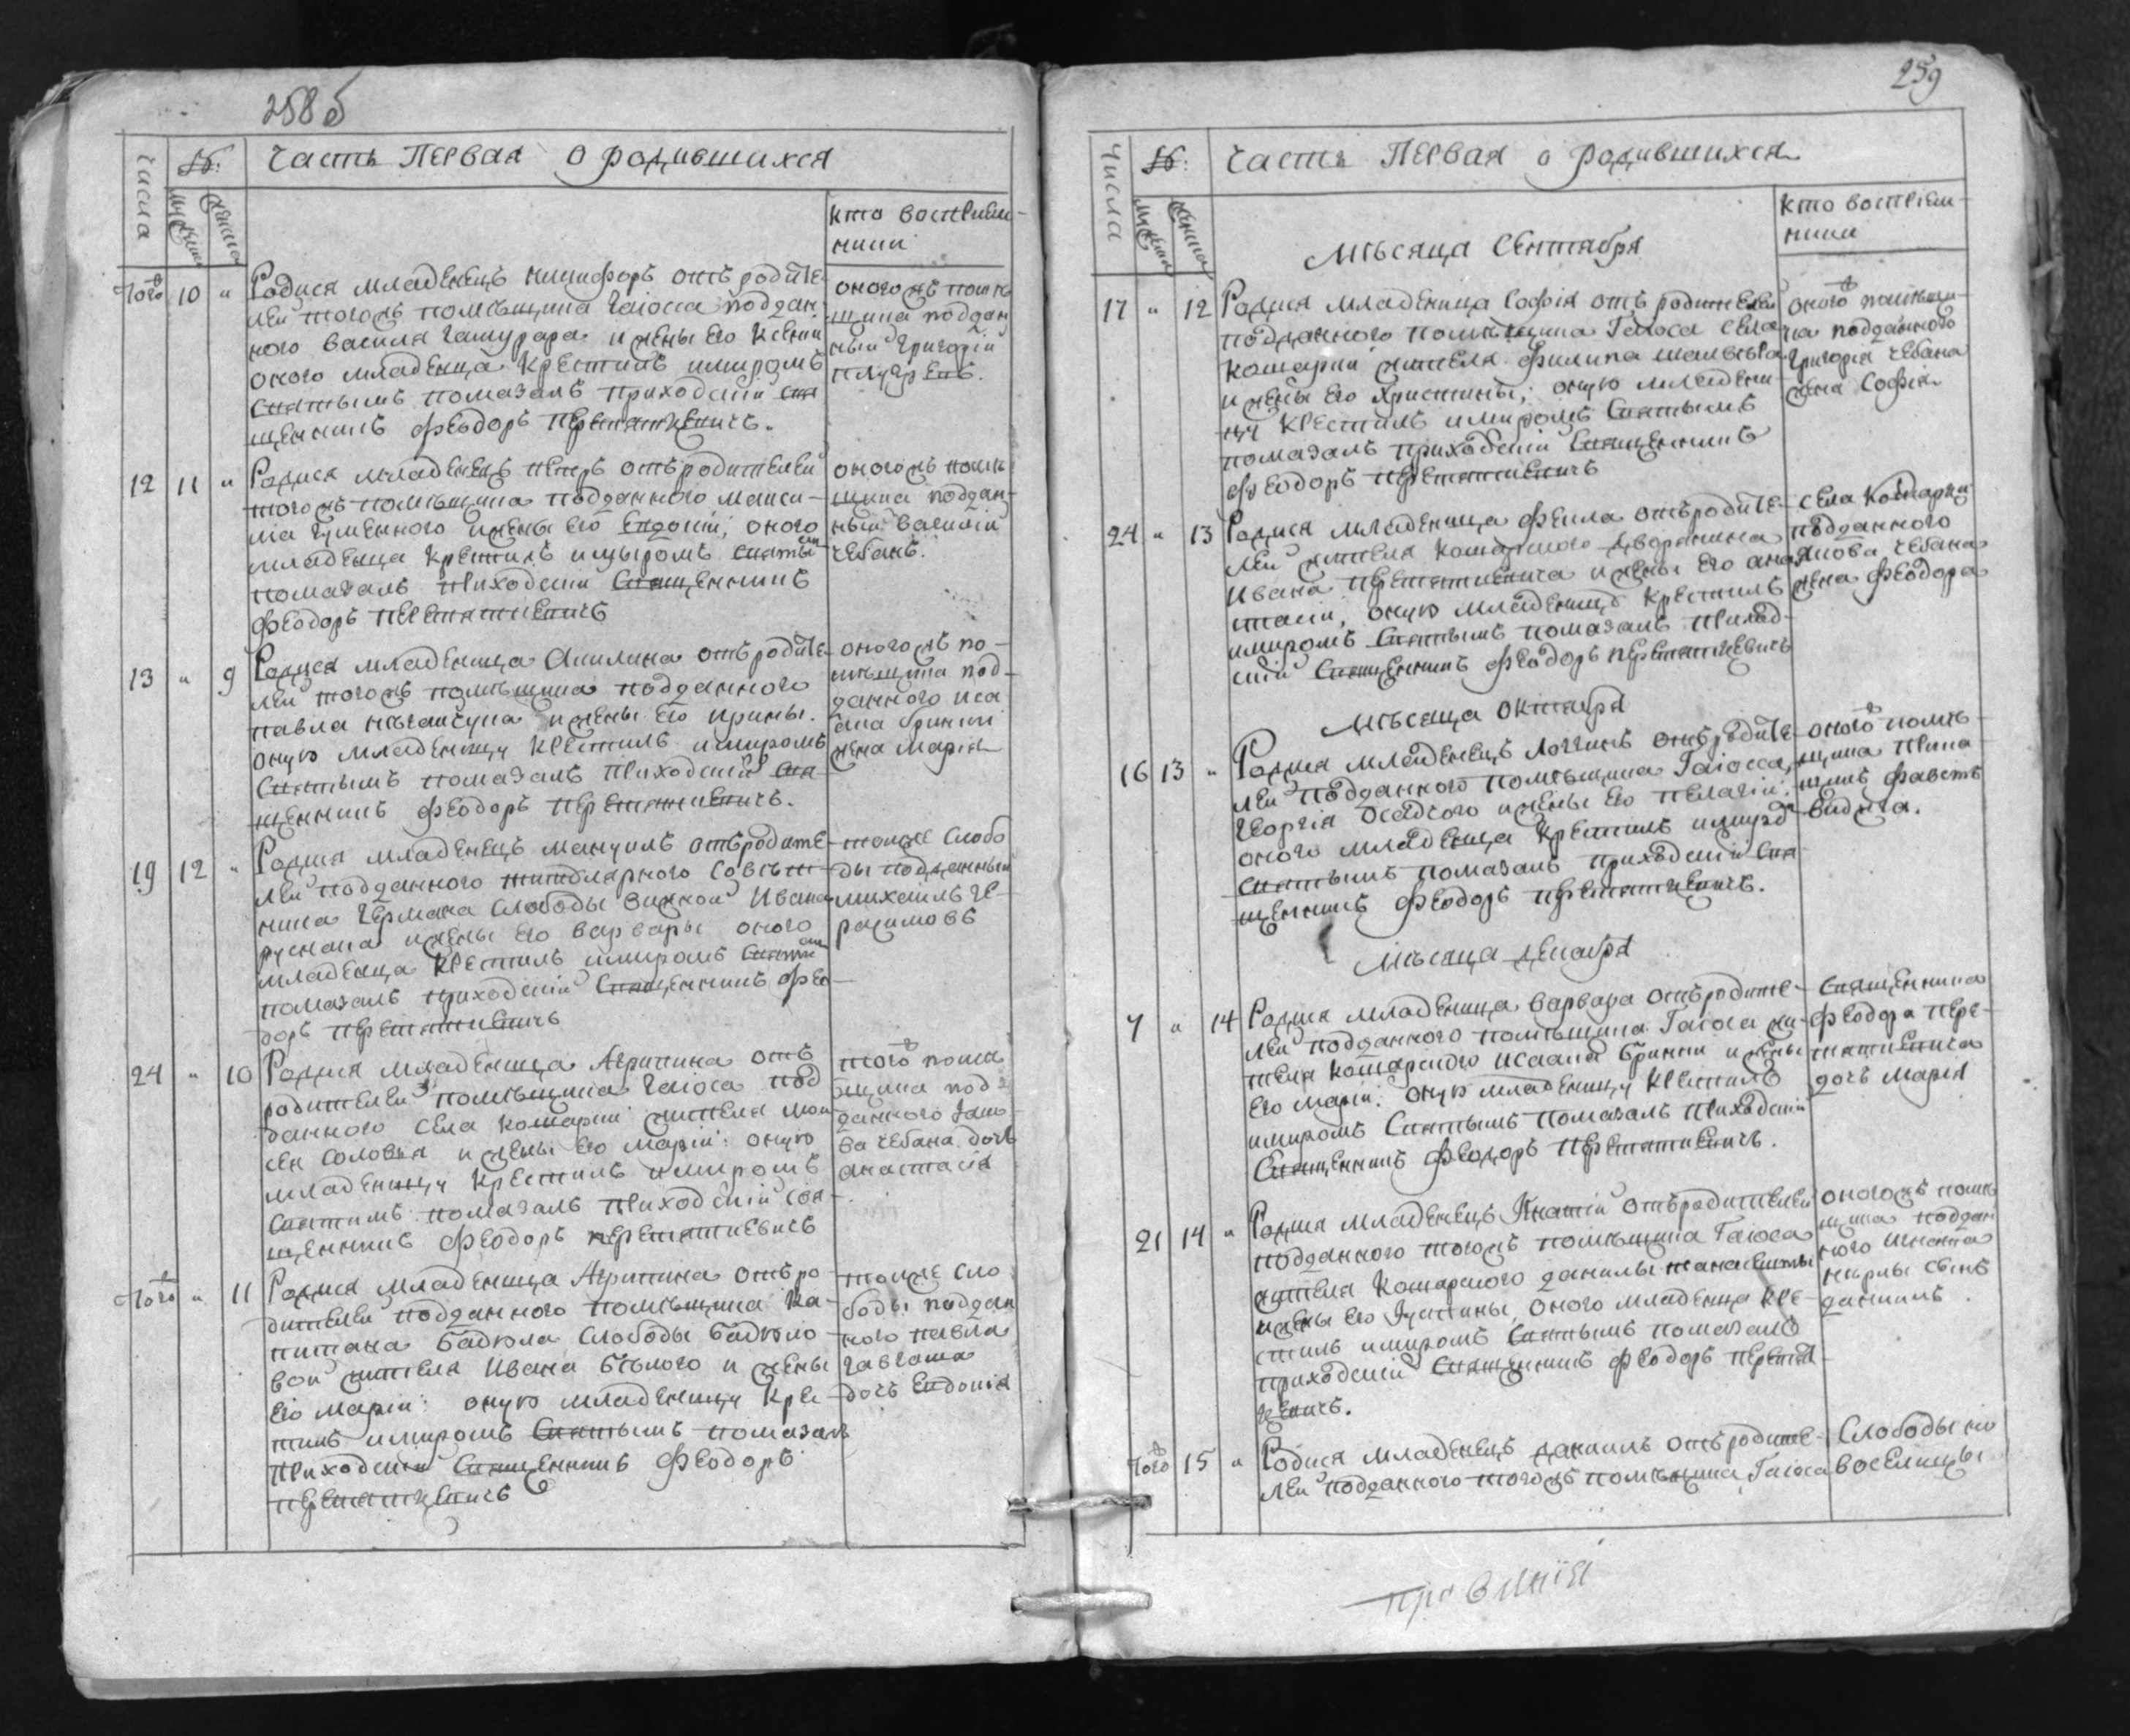 258 б
Числа №: Часть Первая О родившихся
мужеска женска
кто восприем-
ники
Того 10 " Родися младенецъ никифоръ отъ родите-
лей тогожъ помѣщика Гаіосса поддан-
ного василя и жены его Ксении
оного младенца Крестилъ имиромъ
Святымъ помазалъ приходскій свя
щенникъ Феодоръ Перетяткевичъ.
оногожъ помѣ
щика поддан
ный Григорій
12 11 " Родися младенецъ петръ отъ родителей
тогожъ помѣщика подданного макси-
ма гуменного и жены его Евдокіи, оного
младенца Крестилъ имиромъ святы
помазалъ приходскій Священникъ
Феодоръ Перетяткевичъ
оногожъ помѣ
щика поддан-
ный василій
чебанъ.
13 " 9 Родися младеница Акилина отъ родите-
лей тогожъ помѣщика подданного
павла и жены его ирины.
оную младеницу Крестилъ имиромъ
Святымъ помазалъ приходскій свя-
щенникъ Феодоръ Перетяткевичъ.
оногожъ по-
мѣщика под-
данного иса
ака бринзи
жена марія
19 12 " Родися младенецъ мануилъ отъ родите-
лей подданного титулярного Совѣт-
ника германа Слободы Ивана
руснака и жены его варвары оного
младенца Крестилъ имиромъ Святы
помазалъ приходскій Священникъ Фео-
доръ Перетяткевичъ
тойже Слобо
ды подданный
михаилъ ге-
расимовъ
24 " 10 Родися младеница Агрипина отъ
родителей помѣщика Гаіоса под
данного Села Комарки жителя мои
сея Соловья и жены его маріи: оную
младеницу Крестилъ имиромъ
Святимъ помазалъ приходскій свя-
щенникъ Феодоръ Перетяткевичъ
того помѣ
щика под
данного
ва чебана дочъ
анастасія
Того " 11 Родися младеница Агрипина отъ ро-
дителей подданного помѣщика Ка-
питана Бадюла Слободы Бадюло-
вой жителя Ивана бѣлого и жены
его маріи: оную младеницу Кре-
стилъ имиромъ Святымъ помазалъ
приходскій Священникъ Феодоръ
перетяткевичъ
тойже Сло
боды поддан
ного павла
дочъ Евдокія
259
Числа №: Часть Первая о родившихся
мужеска женска
кто восприем-
ники
Мѣсяца Сентября
17 " 12 Родися младеница Софія отъ родителей
подданного помѣщика Гаіоса села
комарки жителя филипа
и жены его Христины; оную младени
цу Крестилъ имиромъ Святымъ
помазалъ приходскій Священникъ
Феодоръ Перетяткевичъ
оного помѣщи-
ка подданного
Григорія чебана
жена Софія
24 " 13 Родися младеница Фекла отъ родите-
лей жителя комарского дворянина
Ивана перетяткевича и жены его ана
стасіи, оную младеницу Крестилъ
имиромъ Святымъ помазалъ приход-
скій Священникъ Феодоръ перетяткевичъ
села Комарки
подданного
якова чебана
жена Феодора
Мѣсяца Октября
16 13 " Родися младенецъ Логгинъ отъ родите-
лей подданного помѣщика Гаіосса,
Георгія Осадсого и жены его пелагіи;
оного младенца Крестилъ имиро
Святымъ помазалъ приходскій Свя
щенникъ Феодоръ Перетяткевичъ.
оного помѣ-
щика
Мѣсяца декабря
7 " 14 Родися младеница варвара отъ родите-
лей подданного помѣщика Гаіоса жи-
теля комарского исаака бринзи и жены
его маріи: оную младеницу Крестилъ
имиромъ Святымъ помазалъ приходскій
Священникъ Феодоръ Перетяткевичъ.
Священника
Феодора пере-
тяткевича
дочъ Марія
21 14 " Родися младенецъ Игнатій отъ родителей
подданного тогожъ помѣщика Гаіоса
жителя Комарского данилы
и жены его Іустины, оного младенца Кре-
стилъ имиромъ Святымъ помазалъ
приходскій Священникъ Феодоръ перетят
кевичъ.
оногожъ помѣ
щика поддан
ного
сынъ
данилъ.
Того 15 " Родися младенецъ даниилъ отъ родите-
лей подданного тогожъ помѣщика Гаіоса
Слободы но
воселицы